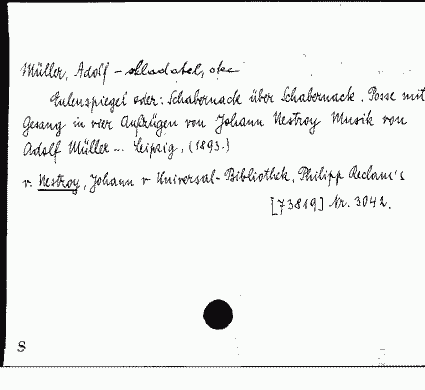 Müller, Adolf – skladatel, otec
Eulenspiegel oder: Schabernack über Schabernack. Posse mit
Gesang in vier Aufzügen von Johann Nestroy Musik von
Adolf Müller ... Leipzig, (1893.)
v. Nestroy, Johann v Universal-Bibliothek, Philipp Reclam's
[73819] Nr. 3042.
S